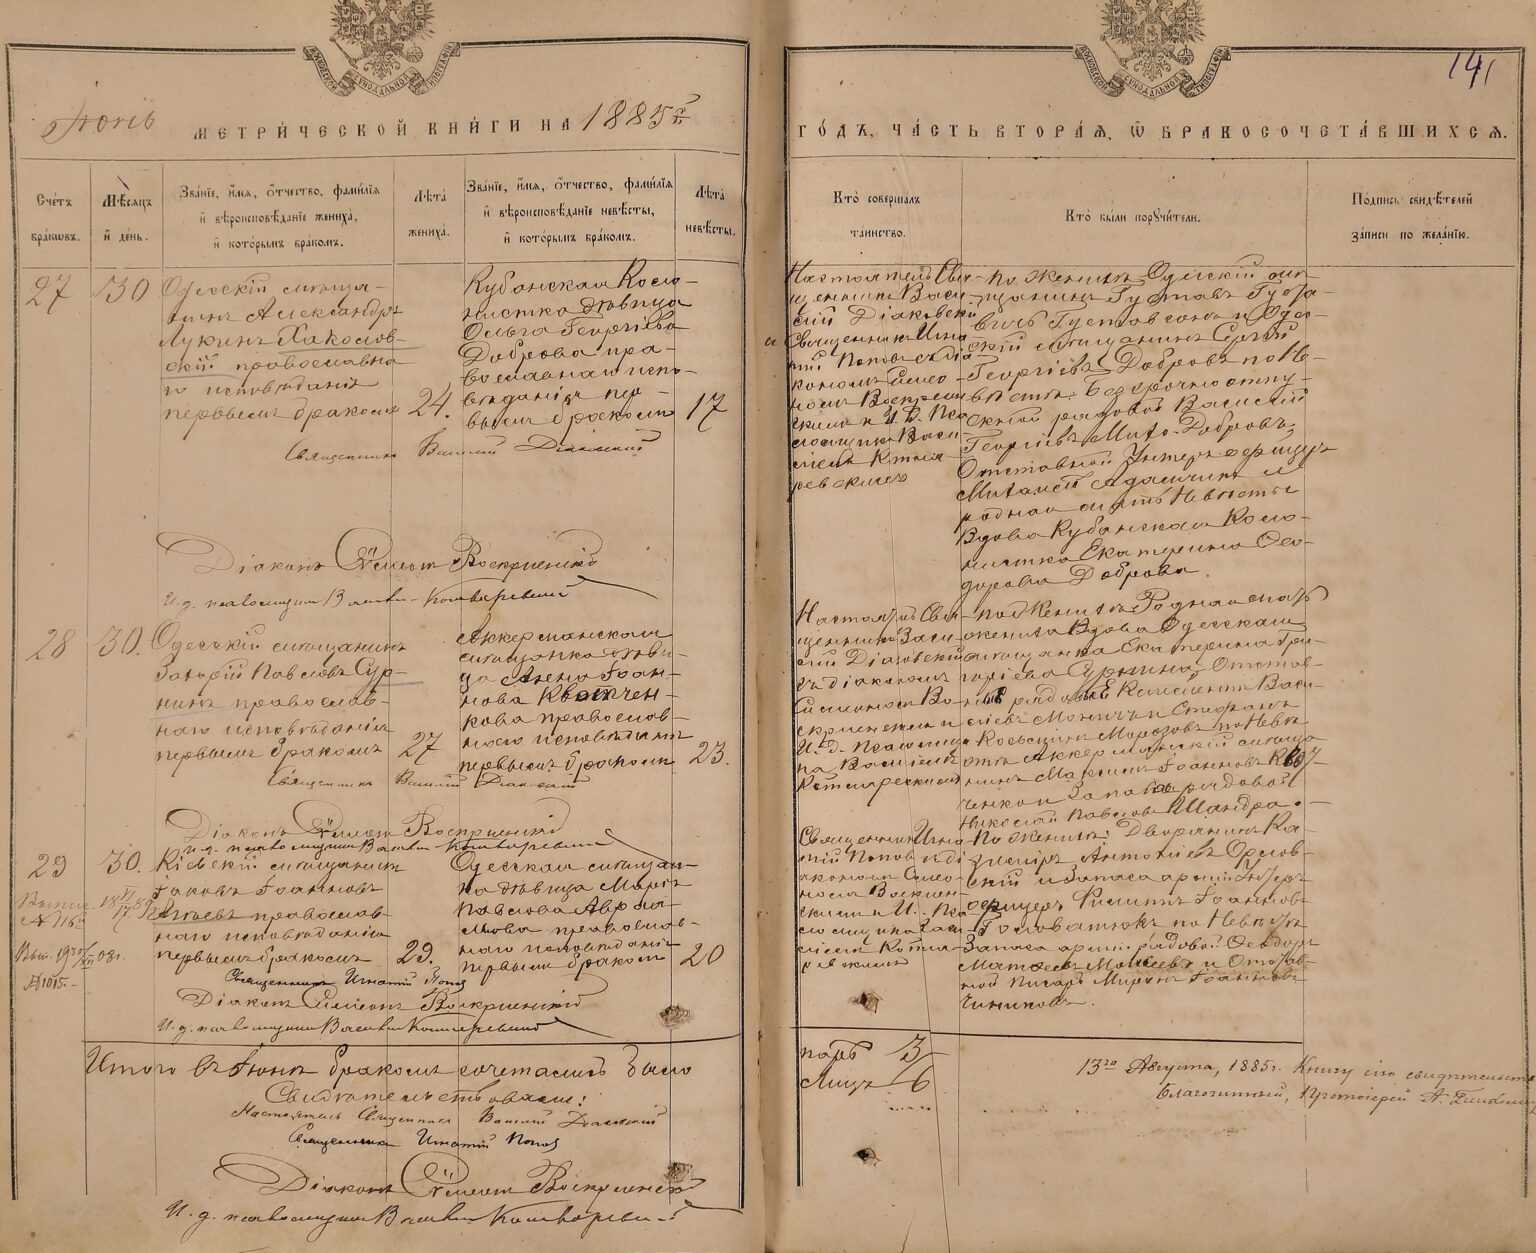 141
Іюнь
МЕТРИ́ЧЕСКОЙ КНИ́ГИ НА 1885й
ГО́ДЪ, ЧА́СТЬ ВТОРА́Я, Ѿ БРАКОСОЧЕТА́ВШИХСЯ.
Сче́тъ бра́кѡвъ.
Мѣ́сяцъ и҆ де́нь.
Зва́нїе, и҆́мя, ѻ҆́тчество, фамилїя
и҆ вѣроисповѣ́данїе жениха̀,
и҆ кото́рымъ бра́комъ.
Лѣта̀ жениха̀.
Зва́нїе, и҆́мя, ѻ҆́тчество, фамилїя
и҆ вѣроисповѣ́данїе невѣ́сты,
и҆ кото́рымъ бра́комъ.
Лѣта̀ невѣ́сты.
Кто̀ соверша́лъ
та́инство.
Кто̀ бы́ли порꙋчи́тели.
По́дпись свидѣ́телей
за́писи по жела́нїю.
27
30
Одесскій мѣща-
нинъ Александръ
Лукинъ Хакослов-
скій православна-
го исповѣданія
первымъ бракомъ
24.
Кубанская Коло-
нистка дѣвица
Ольга Георгіева
Доброва пра-
вославнаго испо-
вѣданія пер-
вымъ бракомъ
17
Настоятель Свя-
щенникъ Васи-
лій Діаковскій
и Священникъ Игна-
тій Поповъ съ діа-
кономъ Симео-
номъ Воскресен-
скимъ и И. д. Пса-
ломщика Васи-
ліемъ Котля-
ревскимъ
По женихѣ: Одесскій мѣ-
щанинъ Густавъ Густа-
вичъ Густовсонъ и Одес-
скій мѣщанинъ Сергѣй
Георгіевъ Добровъ по Не-
вѣстѣ: Безсрочно отпу-
скной рядовой Василій
Георгіевъ Добровъ,
Отставной Унтеръ офицеръ
и
родная мать Невѣсты
Вдова Кубанская Коло-
нистка Екатерина Ѳео-
дорова Доброва.
Священникъ Василій Діаковскій
Діаконъ Симеонъ Воскресенскій
И. д. псаломщика Василій Котляревскій
28
30.
Одесскій мѣщанинъ
Захарій Павловъ Сур-
нинъ православ-
наго исповѣданія
первымъ бракомъ
27
Аккерманская
мѣщанка дѣви-
ца Агена Іоан-
нова Квитчен-
кова православ-
наго исповѣданія
первымъ бракомъ
23.
Настоятель Свя-
щенникъ Васи-
лій Діаковскій
съ діакономъ
Симеономъ Во-
скресенскимъ и
И. д. Псаломщи-
ка Василіемъ
Котляревскимъ
По женихѣ: Родная мать
жениха Вдова Одесская
мѣщанка Екатерина Гри-
горіева Сурнина, Отстав-
ной рядовой Климентъ Васи-
ліевъ и Стефанъ
Морозовъ по Невѣ-
стѣ: Аккерманскій мѣща-
нинъ Максимъ Іоанновъ
ченко и Запасный рядовой
Николай Павловъ Шандра.
Священникъ Василій Діаковскій
Діаконъ Симеонъ Воскресенскій
И. д. псаломщика Василій Котляревскій
29
30.
Кіевскій мѣщанинъ
Іаковъ Іоанновъ
православ-
наго исповѣданія
первымъ бракомъ
29.
Одесская мѣщан-
ка дѣвица Марія
Павлова Аврам-
мова православ-
наго исповѣданія
первымъ бракомъ
20
Священникъ Игна-
тій Поповъ съ ді-
акономъ Симео-
номъ Воскресен-
скимъ и И. д. Пса-
ломщика Васи-
ліемъ Котля-
ревскимъ
По Женихѣ: Дворянинъ Ка-
зиміръ Антоніевъ Орлов-
скій и Запаса арміи Унтеръ
офицеръ Филиппъ Іоанновъ
Головатюкъ по Невѣстѣ
Запаса арміи рядовой Ѳеодоръ
Матѳеевъ Моисеевъ и Отстав-
ной Писарь Миронъ Іоанновъ
Чинковъ.
Священникъ Игнатій Поповъ
Діаконъ Симеонъ Воскресенскій
И. д. псаломщика Василій Котляревскій
Итого въ Іюнѣ бракомъ сочеталось было
паръ 3
Лицъ 6
Свидѣтельствовали:
Настоятель Священникъ Василій Діаковскій
Священникъ Игнатій Поповъ
Діаконъ Симеонъ Воскресенскій
И. д. псаломщика Василій Котляревскій
13го Августа, 1885г. Книгу сію свидѣтельств
Благочинный, Протоіерей А.